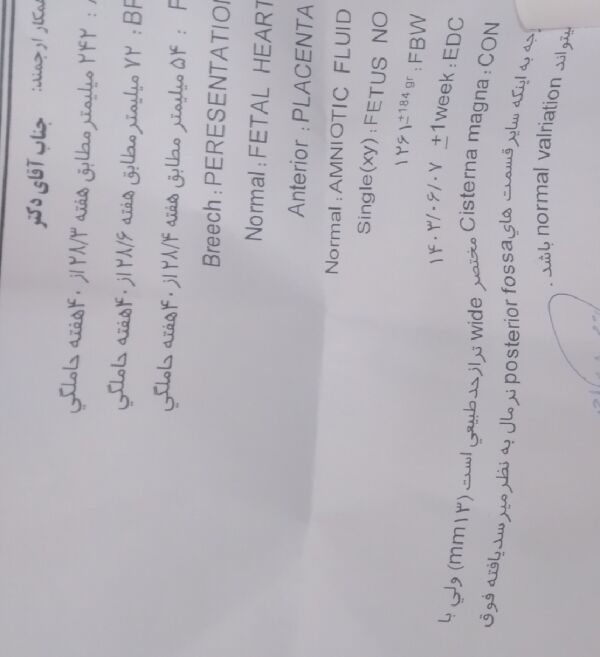 همکار ارجمند: جناب آقای دکتر
: ۲۴۲ میلیمتر مطابق هفته ۲۸/۳ از ۴۰ هفته حاملگي
BP : ۷۲ میلیمتر مطابق هفته ۲۸/۶ از ۴۰ هفته حاملگي
F : ۵۴ میلیمتر مطابق هفته ۲۸/۴ از ۴۰ هفته حاملگي
Breech : PERESENTATION
Normal : FETAL HEART
Anterior : PLACENTA
Normal : AMNIOTIC FLUID
Single(xy) : FETUS NO
۱۲۶۱±184 gr : FBW
۱۴۰۳/۰۶/۰۷ ±1week : EDC
CON : Cisterna magna مختصر wide تر از حد طبیعي است (mm۱۳) ولي با
جه به اینکه سایر قسمت هاي posterior fossa نرمال به نظر میرسد یافته فوق
یتواند normal valriation باشد .